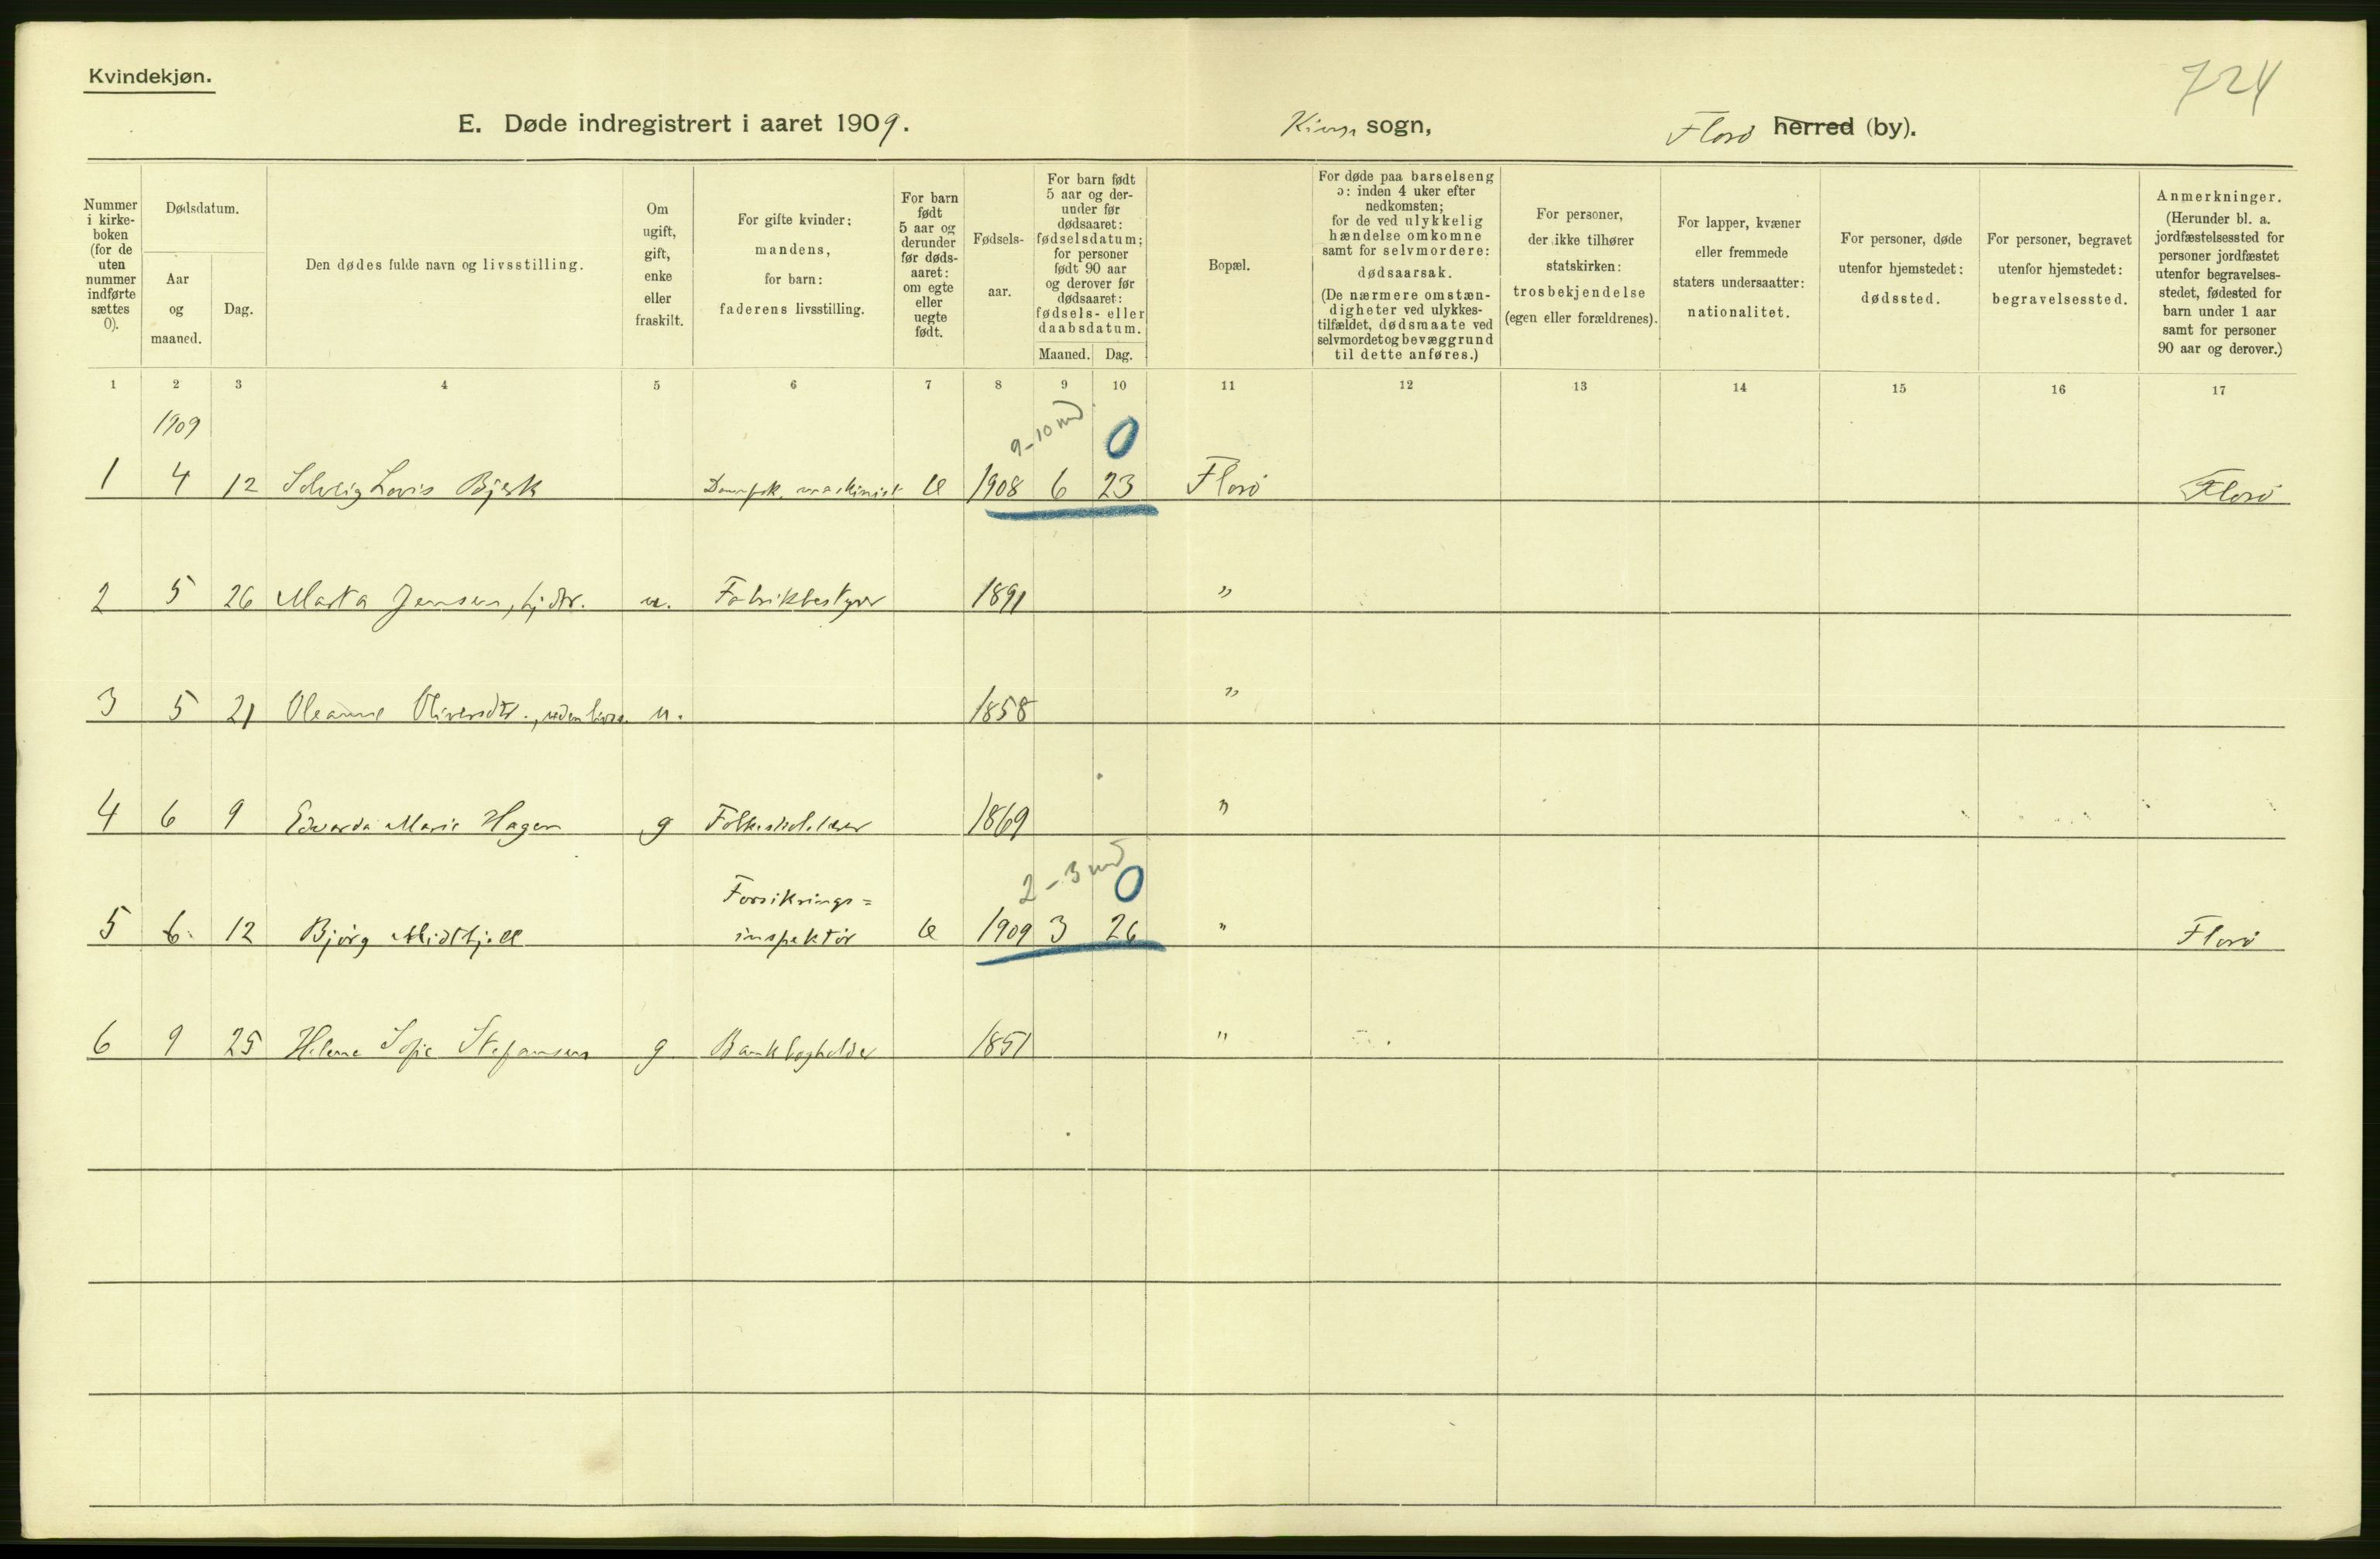 Kvindekjøn.
724
E. Døde indregistrert i aaret 1909.
Kinn sogn,
Florø herred (by).
Nummer i kirke-boken (for de uten nummer indførte sættes 0).
Dødsdatum.
Aar og maaned.
Dag.
Den dødes fulde navn og livsstilling.
Om ugift, gift, enke eller fraskilt.
For gifte kvinder: mandens, for barn: faderens livsstilling.
For barn født 5 aar og derunder før døds-aaret: om egte eller uegte født.
Fødsels-aar.
For barn født 5 aar og der-under før dødsaaret: fødselsdatum; for personer født 90 aar og derover før dødsaaret: fødsels- eller daabsdatum.
Maaned. Dag.
Bopæl.
For døde paa barselseng ɔ: inden 4 uker efter nedkomsten; for de ved ulykkelig hændelse omkomne samt for selvmordere: dødsaarsak. (De nærmere omstæn-digheter ved ulykkes-tilfældet, dødsmaate ved selvmordet og bevæggrund til dette anføres.)
For personer, der ikke tilhører statskirken: trosbekjendelse (egen eller forældrenes).
For lapper, kvæner eller fremmede staters undersaatter: nationalitet.
For personer, døde utenfor hjemstedet: dødssted.
For personer, begravet utenfor hjemstedet: begravelsessted.
Anmerkninger. (Herunder bl. a. jordfæstelsessted for personer jordfæstet utenfor begravelses-stedet, fødested for barn under 1 aar samt for personer 90 aar og derover.)
1 2 3 4 5 6 7 8 9 10 11 12 13 14 15 16 17
1909
9-10 md 0
1 4 12 Solveig Lovis Bjerk maskinist E 1908 6 23 Florø Florø
2 5 26 Marta Jensen, hj.dtr. u. Fabrikbestyrer 1891 "
3 5 21 Oleanne Oliversdtr., uden livss. u. 1858 "
4 6 9 Edvarda Marie Hagen g Folkeskolelærer 1869 "
2-3 md 0
Forsikrings=
5 6 12 Bjørg Midthjell inspektør E 1909 3 26 " Florø
6 9 25 Helene Sofie Stefansen g Bankbogholder 1851 "